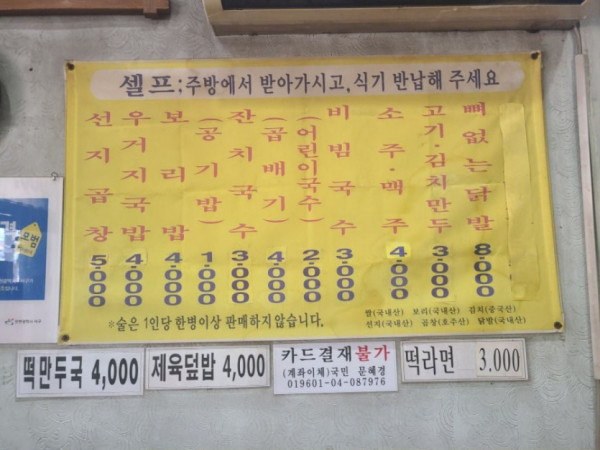 셀프:주방에서 받아가시고,식기 반납해 주세요
선지곱창 5,000
우거지국밥 4,000
보리밥 4,000
(공기밥) 1,000
잔치국수 3,000
(곱배기) 4,000
(어린이국수) 2,000
비빔국수 3,000
소주·맥주 4,000
고기·김치만두 3,000
뼈없는닭발 8,000
쌀(국내산) 보리(국내산) 김치(중국산)
선지(국내산) 곱창(호주산) 닭발(국내산)
술은 1인당 한병이상 판매하지않습니다.
모범
떡만두국 4,000
제육덮밥 4,000
카드결재불가
(계좌이체)국민 문혜경
019601-04-087976
떡라면 3.000